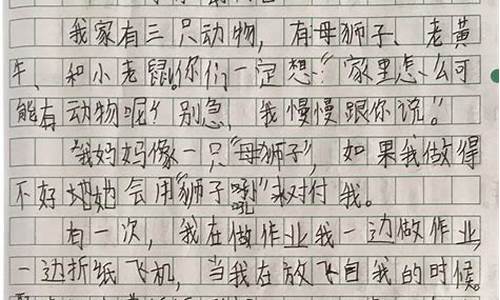 我家有三只动物，有母狮子、老黄
牛、和小老鼠。你们一定想：“家里怎么可
能有动物呢？别急，我慢慢跟你说。”
我妈妈像一只“母狮子”，如果我做得
不好她会用“狮子吼”来对付我。
有一次，我在做作业我一边做作业，
一边折纸飞机，当我在放飞自我的时候。